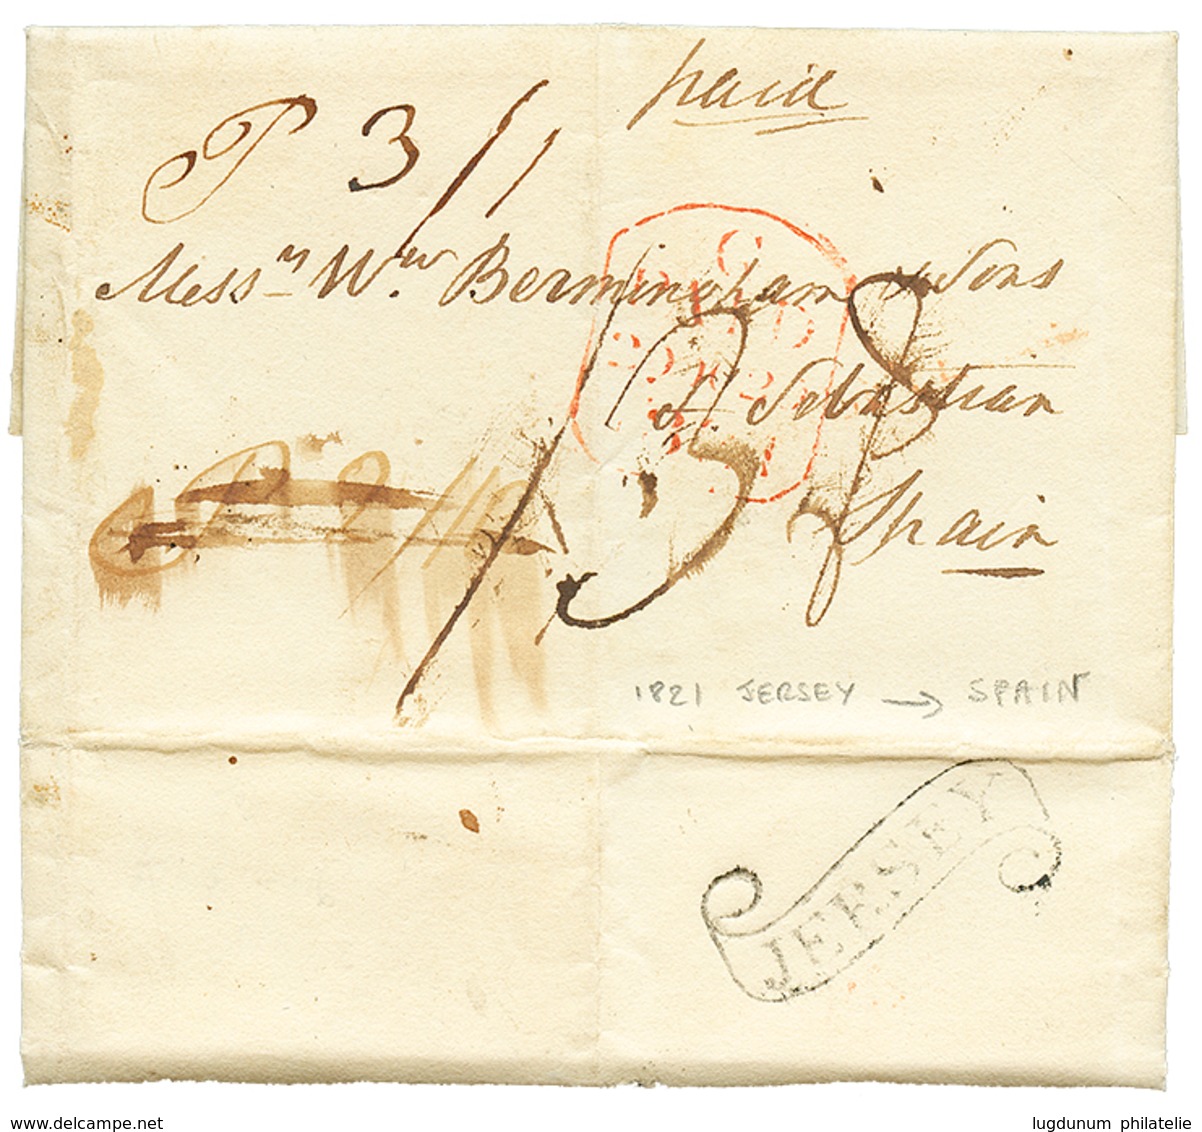 paid
P 3/1
Messrs Wm. Bermingham & Sons
St. Sebastian
Spain
P 2/10
1821 JERSEY → SPAIN
JERSEY
www.delcampe.net
lugdunum philatelie